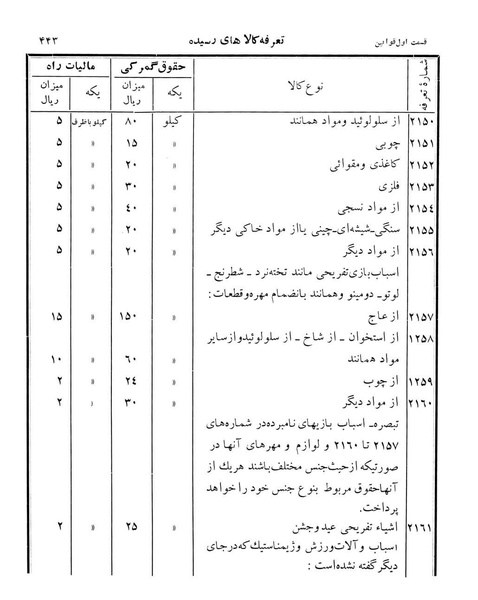 قسمت اول قوانین	تعرفه کالاهای رسیده	۴۴۳
شمارهٔ تعرفه	نوع کالا	حقوق گمرکی	مالیات راه
یکه	میزان ریال	یکه	میزان ریال
۲۱۵۰	از سلولوئید ومواد همانند	کیلو	۸۰	کیلو باظرف	۵
۲۱۵۱	چوبی	»	۱۵	»	۵
۲۱۵۲	کاغذی ومقوائی	»	۲۰	»	۵
۲۱۵۳	فلزی	»	۳۰	»	۵
۲۱۵٤	از مواد نسجی	»	٤۰	»	۵
۲۱۵۵	سنگی-شیشه‌ای-چینی یااز مواد خاکی دیگر	»	۲۰	»	۵
۲۱۵۶	از مواد دیگر	»	۲۰	»	۵
اسباب‌بازی تفریحی مانند تخته‌نرد - شطرنج -
لوتو- دومینو وهمانند بانضمام مهره‌وقطعات:
۲۱۵۷	از عاج	»	۱۵۰	»	۱۵
۱۲۵۸	از استخوان - از شاخ - از سلولوئیدوازسایر
مواد همانند	»	۶۰	»	۱۰
۱۲۵۹	از چوب	»	۲٤	»	۲
۲۱۶۰	از مواد دیگر	»	۳۰	»	۲
تبصره- اسباب بازیهای نامبرده‌در شماره‌های
۲۱۵۷ تا ۲۱۶۰ و لوازم و مهرهای آنها در
صورتیکه ازحیث‌جنس مختلف‌باشند هریك از
آنهاحقوق مربوط بنوع جنس خود را خواهد
پرداخت.
۲۱۶۱	اشیاء تفریحی عیدوجشن	»	۲۵	»	۲
اسباب وآلات‌ورزش وژیمناستیك‌که‌درجای
دیگر گفته نشده‌است: